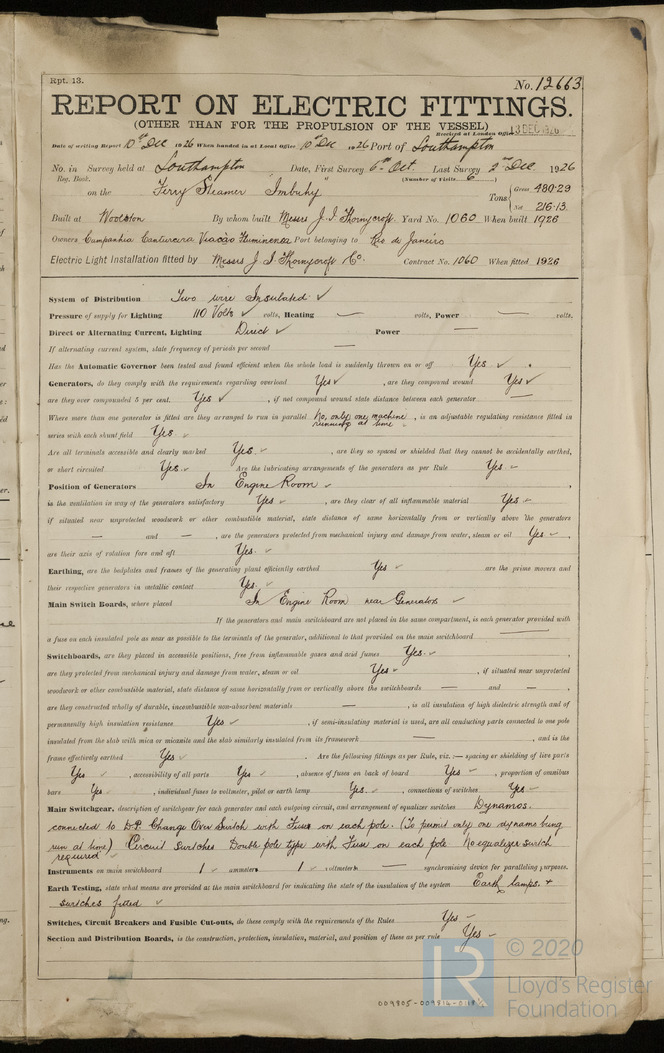 Rpt. 13.
No. 12663
REPORT ON ELECTRIC FITTINGS.
(OTHER THAN FOR THE PROPULSION OF THE VESSEL)
Received at London Office 13 DEC 1926
Date of writing Report 10th Dec 1926 When handed in at Local Office 10th Dec 1926 Port of Southampton
No. in Survey held at Southampton Date, First Survey 6th Oct. Last Survey 2nd Dec. 1926
Reg. Book. (Number of Visits 6)
on the Ferry Steamer "Imbuhy" Tons Gross 480.29 Net 216.13
Built at Woolston By whom built Messrs J. I. Thornycroft Yard No. 1060 When built 1926
Owners Companhia Cantareira Viacão Fluminense Port belonging to Rio de Janeiro
Electric Light Installation fitted by Messrs J I Thornycroft Co. Contract No. 1060 When fitted 1926
System of Distribution Two wire Insulated ✓
Pressure of supply for Lighting 110 Volts ✓ volts, Heating — volts, Power — volts.
Direct or Alternating Current, Lighting Direct ✓ Power —
If alternating current system, state frequency of periods per second —
Has the Automatic Governor been tested and found efficient when the whole load is suddenly thrown on or off Yes ✓.
Generators, do they comply with the requirements regarding overload Yes ✓, are they compound wound Yes ✓
are they over compounded 5 per cent. Yes ✓, if not compound wound state distance between each generator —
Where more than one generator is fitted are they arranged to run in parallel No, only one machine running at time, is an adjustable regulating resistance fitted in
series with each shunt field Yes. ✓
Are all terminals accessible and clearly marked Yes. ✓, are they so spaced or shielded that they cannot be accidentally earthed,
or short circuited Yes. ✓ Are the lubricating arrangements of the generators as per Rule Yes. ✓
Position of Generators In Engine Room ✓,
is the ventilation in way of the generators satisfactory Yes ✓, are they clear of all inflammable material Yes ✓
if situated near unprotected woodwork or other combustible material, state distance of same horizontally from or vertically above the generators
— and —, are the generators protected from mechanical injury and damage from water, steam or oil Yes ✓,
are their axis of rotation fore and aft Yes. ✓
Earthing, are the bedplates and frames of the generating plant efficiently earthed Yes ✓ are the prime movers and
their respective generators in metallic contact Yes. ✓
Main Switch Boards, where placed In Engine Room near Generators ✓
If the generators and main switchboard are not placed in the same compartment, is each generator provided with
a fuse on each insulated pole as near as possible to the terminals of the generator, additional to that provided on the main switchboard —
Switchboards, are they placed in accessible positions, free from inflammable gases and acid fumes Yes. ✓,
are they protected from mechanical injury and damage from water, steam or oil Yes ✓, if situated near unprotected
woodwork or other combustible material, state distance of same horizontally from or vertically above the switchboards — and —,
are they constructed wholly of durable, incombustible non-absorbent materials —, is all insulation of high dielectric strength and of
permanently high insulation resistance Yes ✓, if semi-insulating material is used, are all conducting parts connected to one pole
insulated from the slab with mica or micanite and the slab similarly insulated from its framework —, and is the
frame effectively earthed Yes ✓. Are the following fittings as per Rule, viz.:— spacing or shielding of live parts
Yes ✓, accessibility of all parts Yes ✓, absence of fuses on back of board Yes ✓, proportion of omnibus
bars Yes ✓, individual fuses to voltmeter, pilot or earth lamp Yes. ✓, connections of switches Yes ✓
Main Switchgear, description of switchgear for each generator and each outgoing circuit, and arrangement of equalizer switches Dynamos.
connected to D.P. Change Over Switch with Fuses on each pole. (To permit only one dynamo being
run at time) Circuit switches Double pole type with Fuse on each pole No equalizer switch
required ✓
Instruments on main switchboard 1 ✓ ammeters 1 ✓ voltmeters — synchronising device for paralleling purposes.
Earth Testing, state what means are provided at the main switchboard for indicating the state of the insulation of the system Earth lamps. &
switches fitted ✓
Switches, Circuit Breakers and Fusible Cut-outs, do these comply with the requirements of the Rules Yes ✓
Section and Distribution Boards, is the construction, protection, insulation, material, and position of these as per rule Yes ✓
© 2020
LR
Lloyd's Register
Foundation